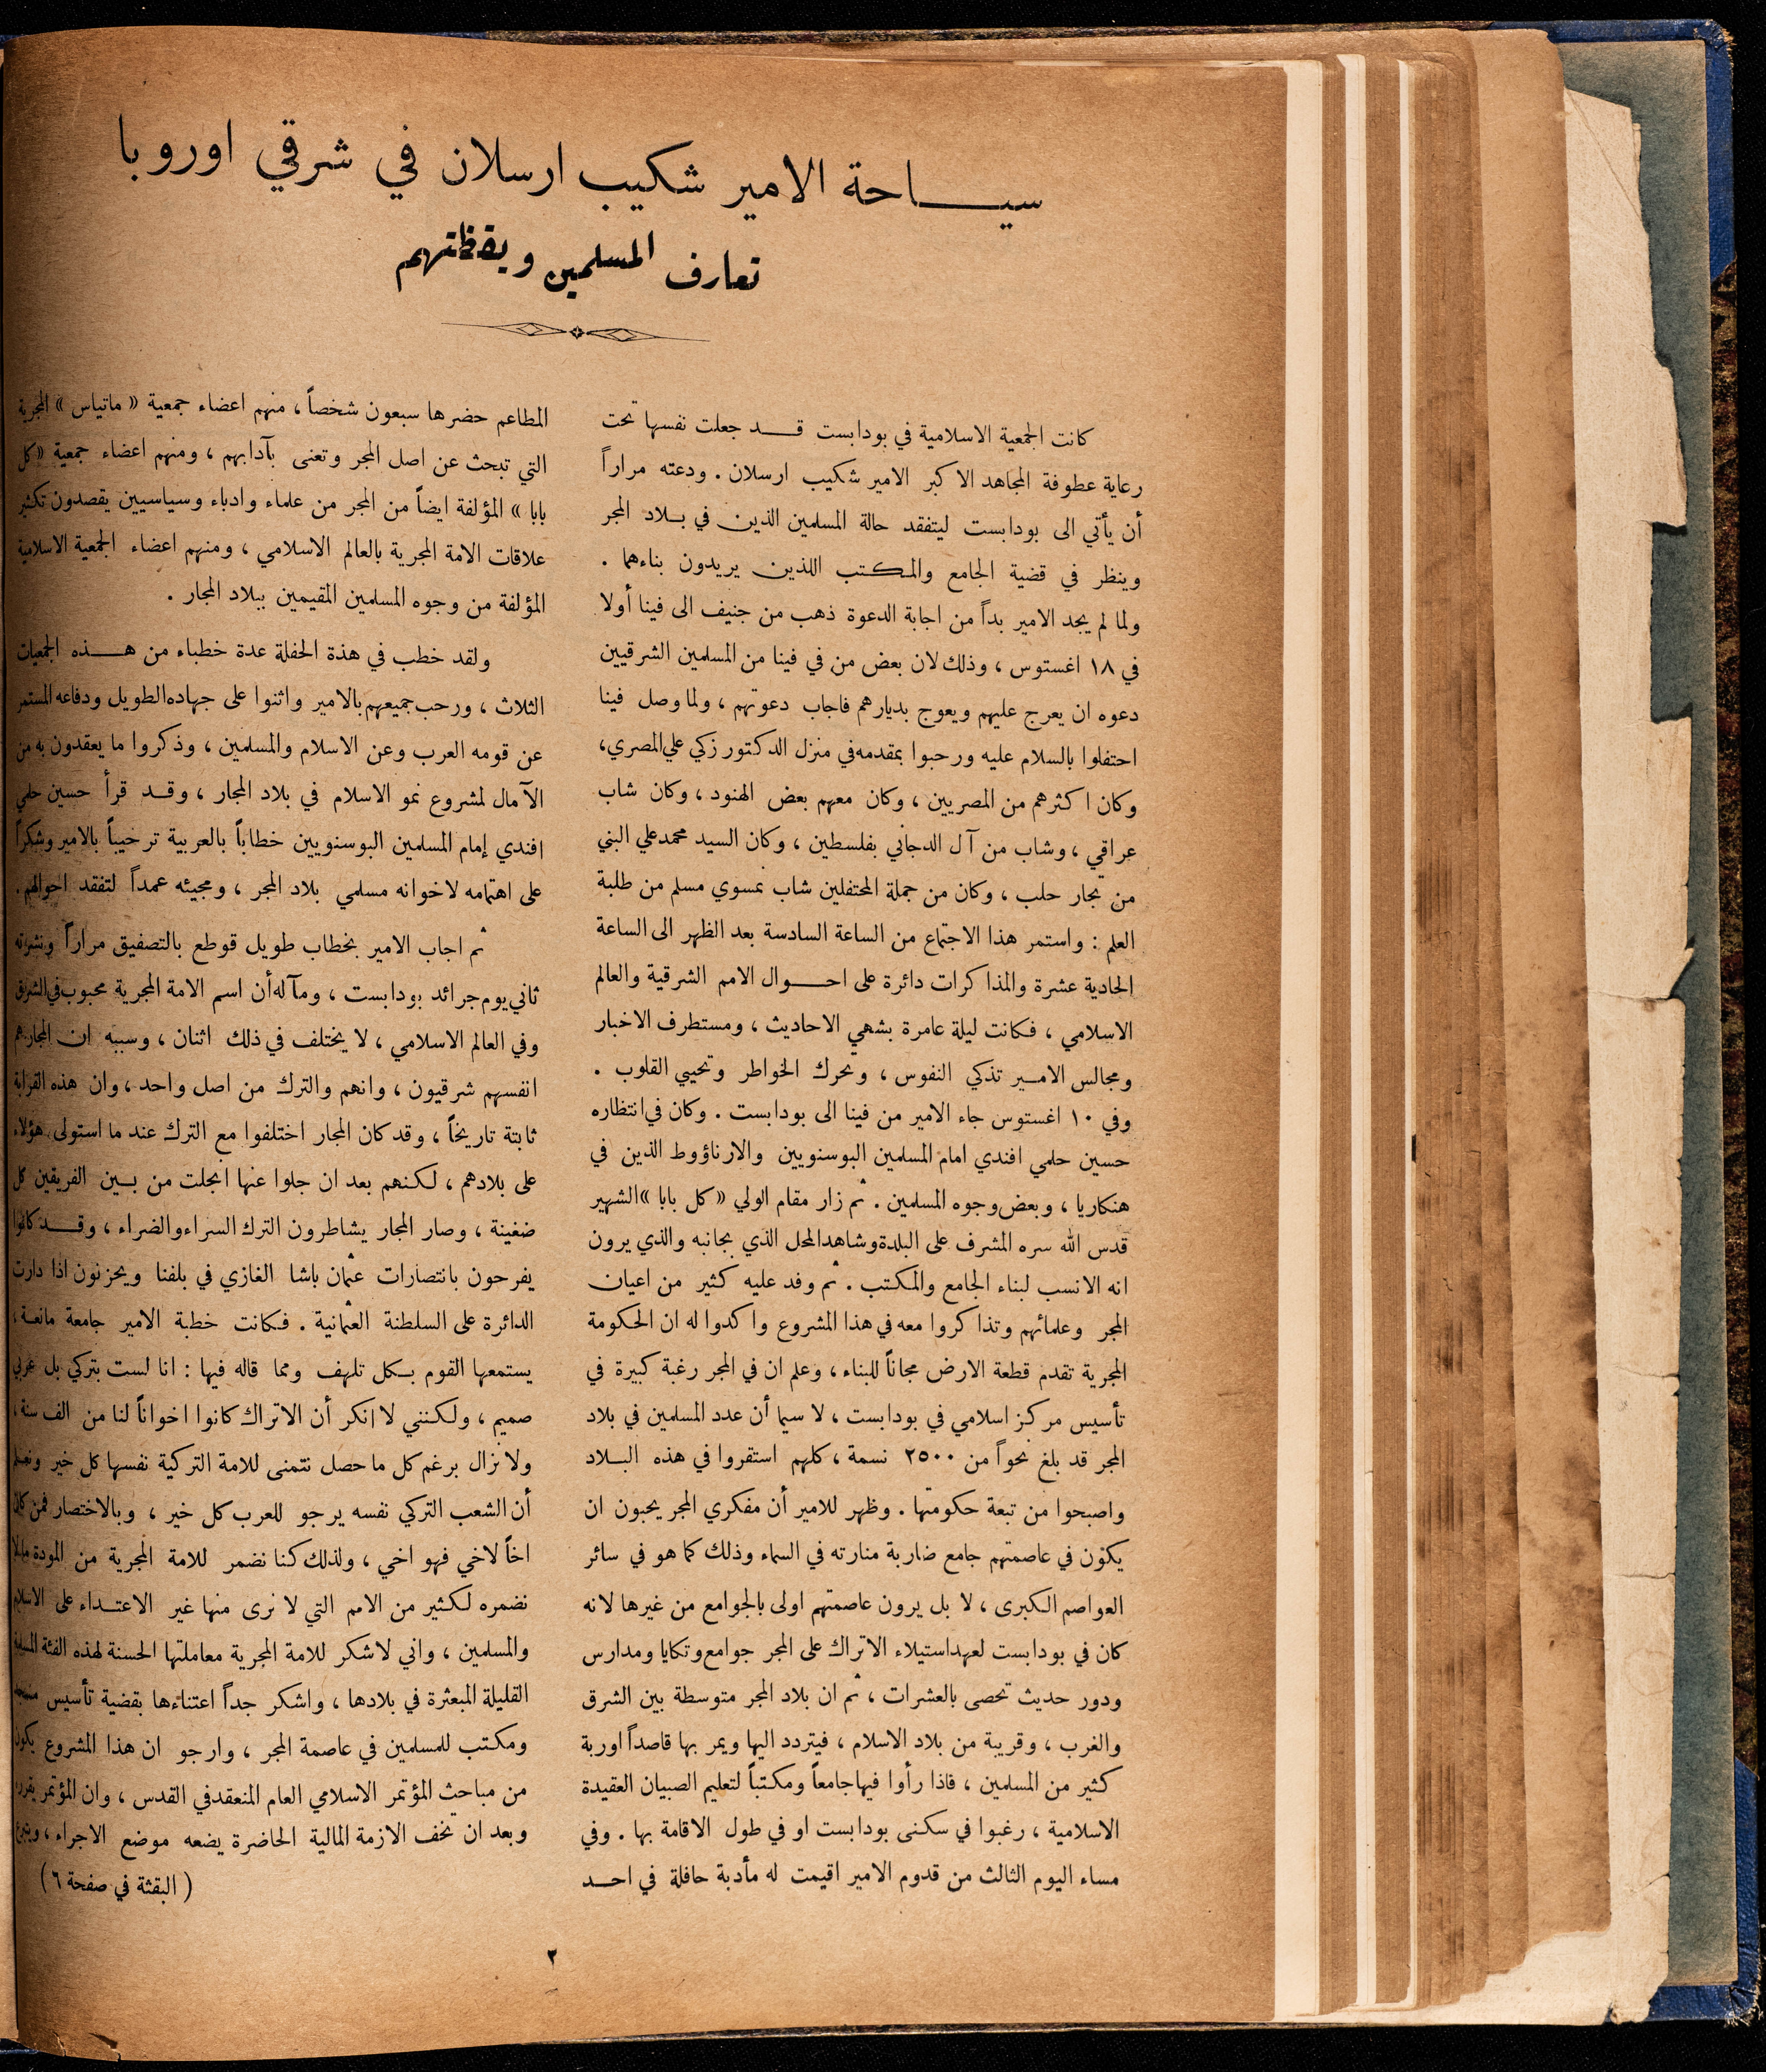 سياحة الامير شكيب ارسلان في شرقي اوروبا
تعارف المسلمين ويقظتهم
كانت الجمعية الاسلامية في بودابست قد جعلت نفسها تحت
رعاية عطوفة المجاهد الاكبر الامير شكيب ارسلان . ودعته مراراً
أن يأتي الى بودابست ليتفقد حالة المسلمين الذين في بلاد المجر
وينظر في قضية الجامع والمكتب اللذين يريدون بناءهما .
ولما لم يجد الامير بداً من اجابة الدعوة ذهب من جنيف الى فينا أولا
في ١٨ اغستوس ، وذلك لان بعض من في فينا من المسلمين الشرقيين
دعوه ان يعرج عليهم ويعوج بديارهم فاجاب دعوتهم ، ولما وصل فينا
احتفلوا بالسلام عليه ورحبوا بمقدمه في منزل الدكتور زكي علي المصري ،
وكان اكثرهم من المصريين ، وكان معهم بعض الهنود ، وكان شاب
عراقي ، وشاب من آل الدجاني بفلسطين ، وكان السيد محمد علي البني
من تجار حلب ، وكان من جملة المحتفلين شاب نمسوي مسلم من طلبة
العلم : واستمر هذا الاجتماع من الساعة السادسة بعد الظهر الى الساعة
الحادية عشرة والمذاكرات دائرة على احوال الامم الشرقية والعالم
الاسلامي ، فكانت ليلة عامرة بشهي الاحاديث ، ومستطرف الاخبار
ومجالس الامير تذكي النفوس ، وتحرك الخواطر وتحيي القلوب .
وفي ١٠ اغستوس جاء الامير من فينا الى بودابست . وكان في انتظاره
حسين حلمي افندي امام المسلمين البوسنويين والارناؤوط الذين في
هنكاريا ، وبعض وجوه المسلمين . ثم زار مقام الولي « كل بابا » الشهير
قدس الله سره المشرف على البلدة وشاهد المحل الذي بجانبه والذي يرون
انه الانسب لبناء الجامع والمكتب . ثم وفد عليه كثير من اعيان
المجر وعلمائهم وتذاكروا معه في هذا المشروع واكدوا له ان الحكومة
المجرية تقدم قطعة الارض مجاناً للبناء ، وعلم ان في المجر رغبة كبيرة في
تأسيس مركز اسلامي في بودابست ، لا سيما أن عدد المسلمين في بلاد
المجر قد بلغ نحواً من ٢٥٠٠ نسمة ، كلهم استقروا في هذه البلاد
واصبحوا من تبعة حكومتها . وظهر للامير أن مفكري المجر يحبون ان
يكون في عاصمتهم جامع ضاربة منارته في السماء وذلك كما هو في سائر
العواصم الكبرى ، لا بل يرون عاصمتهم اولى بالجوامع من غيرها لانه
كان في بودابست لعهد استيلاء الاتراك على المجر جوامع وتكايا ومدارس
ودور حديث تحصى بالعشرات ، ثم ان بلاد المجر متوسطة بين الشرق
والغرب ، وقريبة من بلاد الاسلام ، فيتردد اليها ويمر بها قاصداً اوربة
كثير من المسلمين ، فاذا رأوا فيها جامعاً ومكتباً لتعليم الصبيان العقيدة
الاسلامية ، رغبوا في سكنى بودابست او في طول الاقامة بها . وفي
مساء اليوم الثالث من قدوم الامير اقيمت له مأدبة حافلة في احد
المطاعم حضرها سبعون شخصاً ، منهم اعضاء جمعية « ماتياس » المجرية
التي تبحث عن اصل المجر وتعنى بآدابهم ، ومنهم اعضاء جمعية « كل
بابا » المؤلفة ايضاً من المجر من علماء وادباء وسياسيين يقصدون تكثير
علاقات الامة المجرية بالعالم الاسلامي ، ومنهم اعضاء الجمعية الاسلامية
المؤلفة من وجوه المسلمين المقيمين ببلاد المجار .
ولقد خطب في هذة الحفلة عدة خطباء من هذه الجمعيات
الثلاث ، ورحب جميعهم بالامير واثنوا على جهاده الطويل ودفاعه المستمر
عن قومه العرب وعن الاسلام والمسلمين ، وذكروا ما يعقدون به من
الآمال لمشروع نمو الاسلام في بلاد المجار ، وقد قرأ حسين حلمي
افندي إمام المسلمين البوسنويين خطاباً بالعربية ترحيباً بالامير وشكراً
على اهتمامه لاخوانه مسلمي بلاد المجر ، ومجيئه عمداً لتفقد احوالهم .
ثم اجاب الامير بخطاب طويل قوطع بالتصفيق مراراً ونشرته
ثاني يوم جرائد بودابست ، ومآله أن اسم الامة المجرية محبوب في الشرق
وفي العالم الاسلامي ، لا يختلف في ذلك اثنان ، وسببه ان المجار هم
انفسهم شرقيون ، وانهم والترك من اصل واحد ، وان هذه القرابة
ثابتة تاريخاً ، وقد كان المجار اختلفوا مع الترك عند ما استولى هؤلاء
على بلادهم ، لكنهم بعد ان جلوا عنها انجلت من بين الفريقين كل
ضغينة ، وصار المجار يشاطرون الترك السراء والضراء ، وقد كانوا
يفرحون بانتصارات عثمان باشا الغازي في بلفنا ويحزنون اذا دارت
الدائرة على السلطنة العثمانية . فكانت خطبة الامير جامعة مانعة ،
يستمعها القوم بكل تلهف ومما قاله فيها : انا لست بتركي بل عربي
صميم ، ولكنني لا انكر أن الاتراك كانوا اخواناً لنا من الف سنة ،
ولا نزال برغم كل ما حصل نتمنى للامة التركية نفسها كل خير ونعلم
أن الشعب التركي نفسه يرجو للعرب كل خير ، وبالاختصار فمن كان
اخاً لاخي فهو اخي ، ولذلك كنا نضمر للامة المجرية من المودة مالا
نضمره لكثير من الامم التي لا نرى منها غير الاعتداء على الاسلام
والمسلمين ، واني لاشكر للامة المجرية معاملتها الحسنة لهذه الفئة المسلمة
القليلة المبعثرة في بلادها ، واشكر جداً اعتناءها بقضية تأسيس
ومكتب للمسلمين في عاصمة المجر ، وارجو ان هذا المشروع يكون
من مباحث المؤتمر الاسلامي العام المنعقد في القدس ، وان المؤتمر يقرره
وبعد ان تخف الازمة المالية الحاضرة يضعه موضع الاجراء ،
( البقثة في صفحة ٦ )
٢